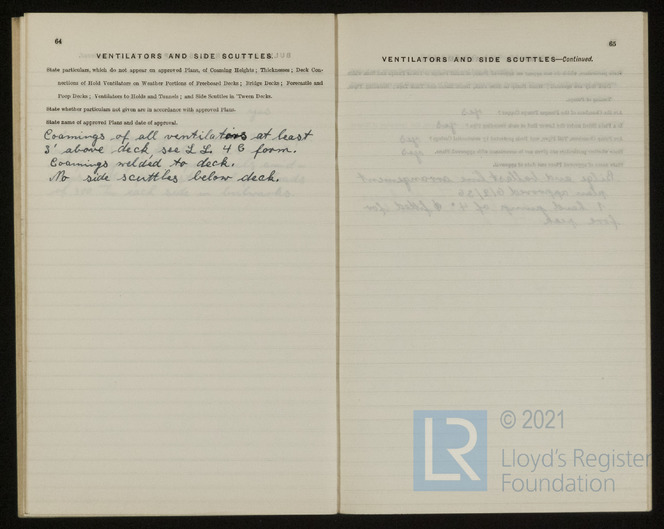 64
VENTILATORS AND SIDE SCUTTLES.
State particulars, which do not appear on approved Plans, of Coaming Heights; Thicknesses; Deck Con-
nections of Hold Ventilators on Weather Portions of Freeboard Decks; Bridge Decks; Forecastle and
Poop Decks; Ventilators to Holds and Tunnels; and Side Scuttles in 'Tween Decks.
State whether particulars not given are in accordance with approved Plans.
State name of approved Plans and date of approval.
Coamings of all ventilators at least
3' above deck see L.L. 4 B form.
Coamings welded to deck.
No side scuttles below deck.
65
VENTILATORS AND SIDE SCUTTLES—Continued.
LR
© 2021
Lloyd's Register
Foundation